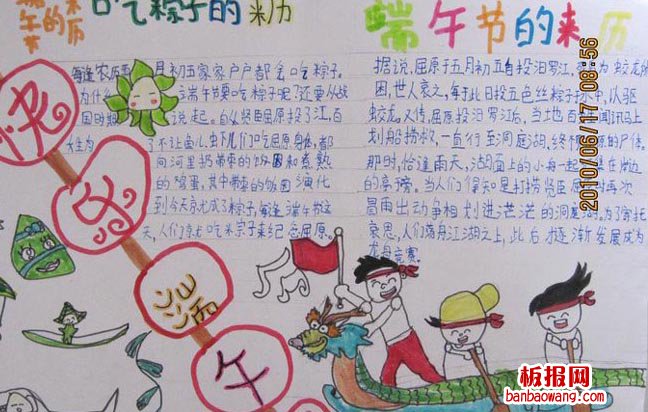 端午节的来历
吃粽子的来历
每逢农历五月初五家家户户都会吃粽子。
为什么端午节要吃粽子呢?还要从战
国时期说起。自从贤臣屈原投了江,百
姓为了不让鱼儿、虾儿们吃屈原身体,都
向河里扔带枣的饭团和煮熟
的鸡蛋,其中带枣的饭团演化
到今天竟尤成了粽子,每逢端午节这
天,人们吃粽子来纪念屈原。
端午节的来历
据说,屈原于五月初五自投汨罗江,为蛟龙所
困,世人哀之,每于此日投五色丝粽子于水中,以驱
蛟龙。又传,屈原投汨罗江后,当地百姓闻讯马上
划船捞救,一直行至洞庭湖,终不见屈原的尸体。
那时,恰逢雨天,湖面上的小舟一起汇集在岸边
的亭旁。当人们得知是打捞贤臣屈原时,再次
冒雨出动,争相划进茫茫的洞庭湖。为了寄托
哀思,人们荡舟江湖之上,此后才逐渐发展成为
龙舟竞赛。
快
乐
端
午
2010/06/17 08:56
板报网
banbaowang.com